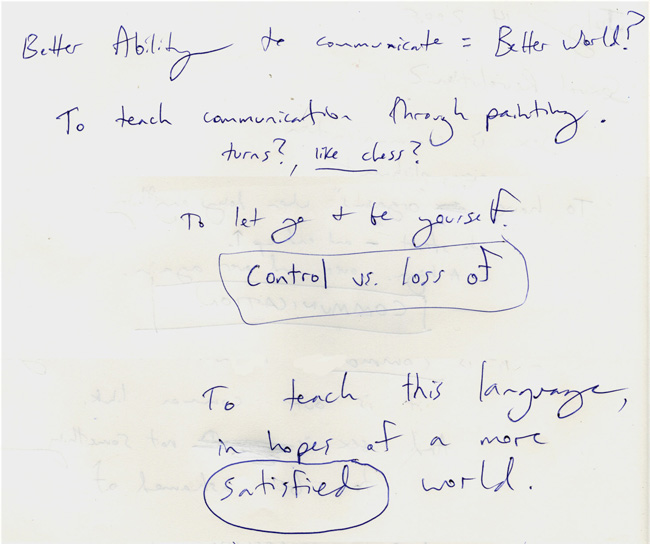 Better Ability to communicate = Better World?
To teach communication through painting.
turns?, like chess?
To let go + be yourself.
Control vs. loss of
To teach this language,
in hopes of a more
satisfied world.